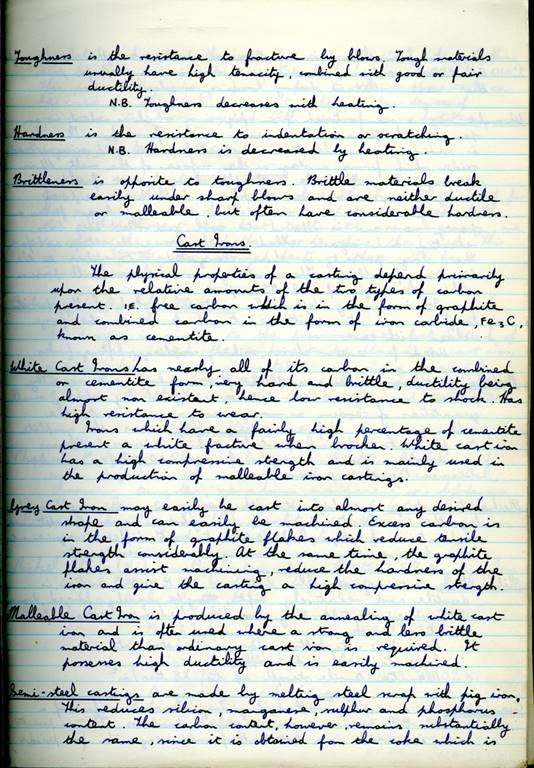 Toughness is the resistance to fracture by blows. Tough materials
usually have high tenacity, combined with good or fair
ductility.
N.B. Toughness decreases with heating.
Hardness is the resistance to indentation or scratching.
N.B. Hardness is decreased by heating.
Brittleness is opposite to toughness. Brittle materials break
easily under sharp blows and are neither ductile
or malleable, but often have considerable hardness.
Cast Irons.
The physical properties of a casting depend primarily
upon the relative amounts of the two types of carbon
present. I.E. free carbon which is in the form of graphite
and combined carbon in the form of iron carbide, Fe3C,
known as cementite.
White Cast Irons has nearly all of its carbon in the combined
or cementite form, very hard and brittle, ductility being
almost non existent, hence low resistance to shock. Has
high resistance to wear.
Irons which have a fairly high percentage of cementite
present a white fracture when brocken. White cast iron
has a high compressive strength and is mainly used in
the production of malleable iron castings.
Grey Cast Iron may easily be cast into almost any desired
shape and can easily be machined. Excess carbon is
in the form of graphite flakes which reduce tensile
strength considerably. At the same time, the graphite
flakes assist machining, reduce the hardness of the
iron and give the casting a high compressive strength.
Malleable Cast Iron is produced by the annealing of white cast
iron and is often used where a strong and less brittle
material than ordinary cast iron is required. It
possesses high ductility and is easily machined.
Semi-steel castings are made by melting steel scrap with pig iron.
This reduces silicon, manganese, sulphur and phosphorus
content. The carbon content, however, remains substantially
the same, since it is obtained from the coke which is